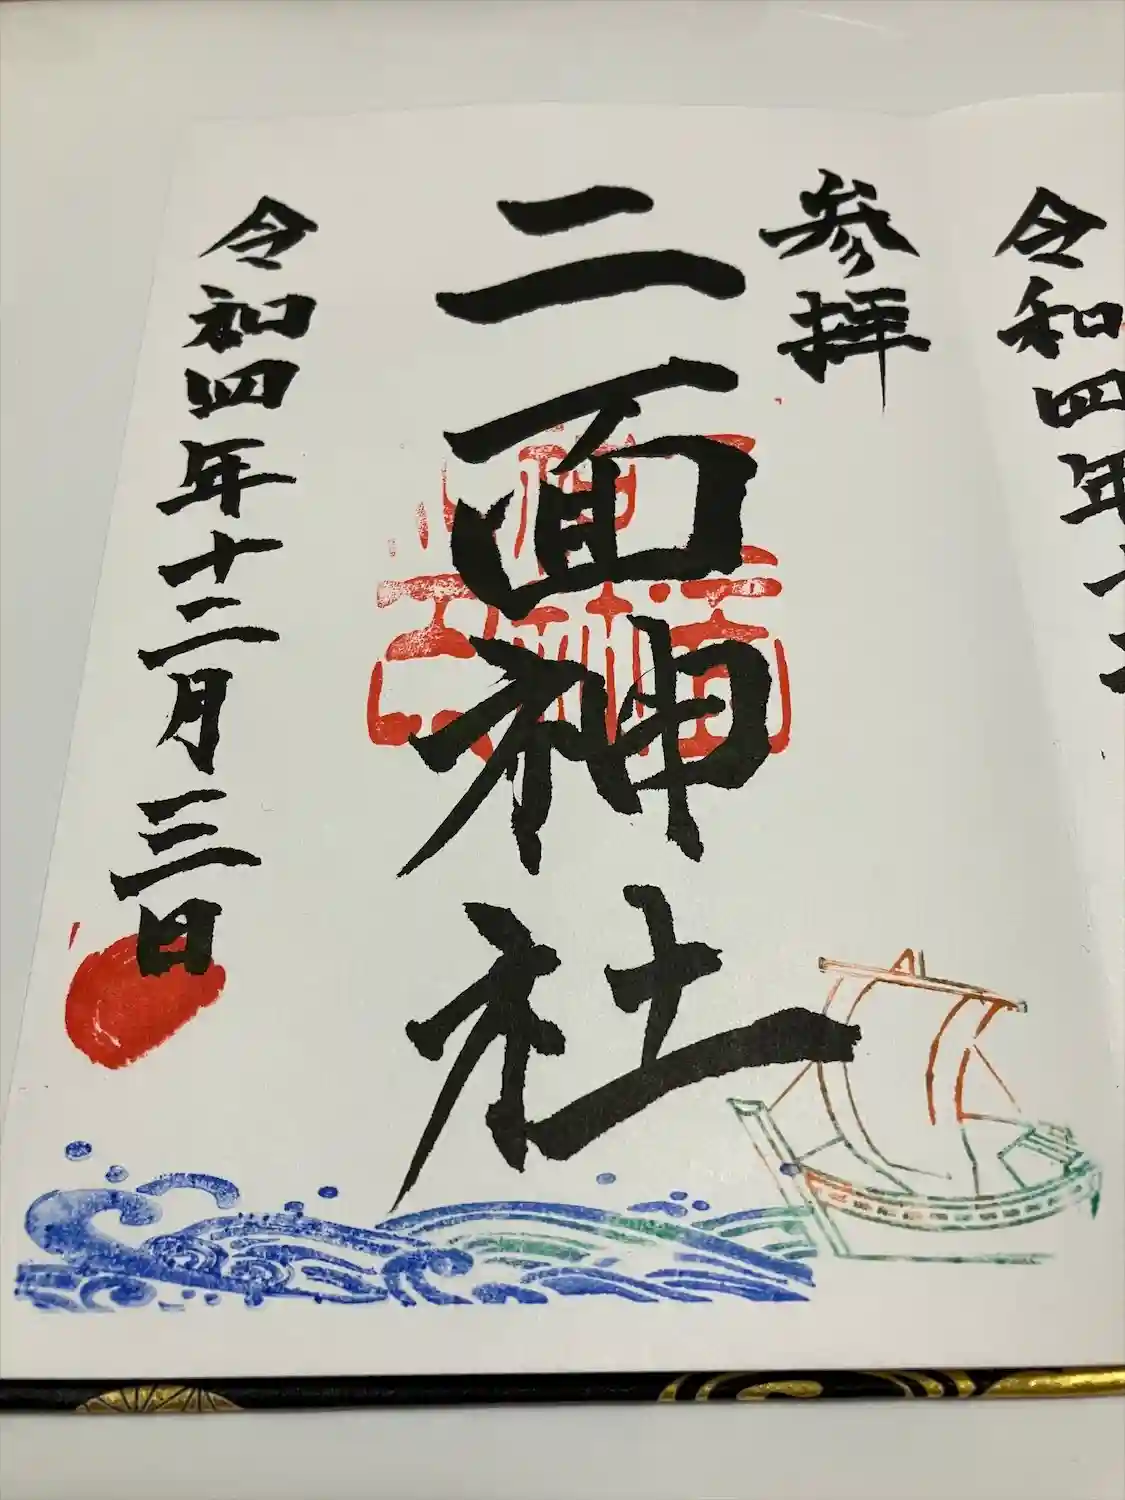 令和四年十二
参拝
二面神社
令和四年十二月三日